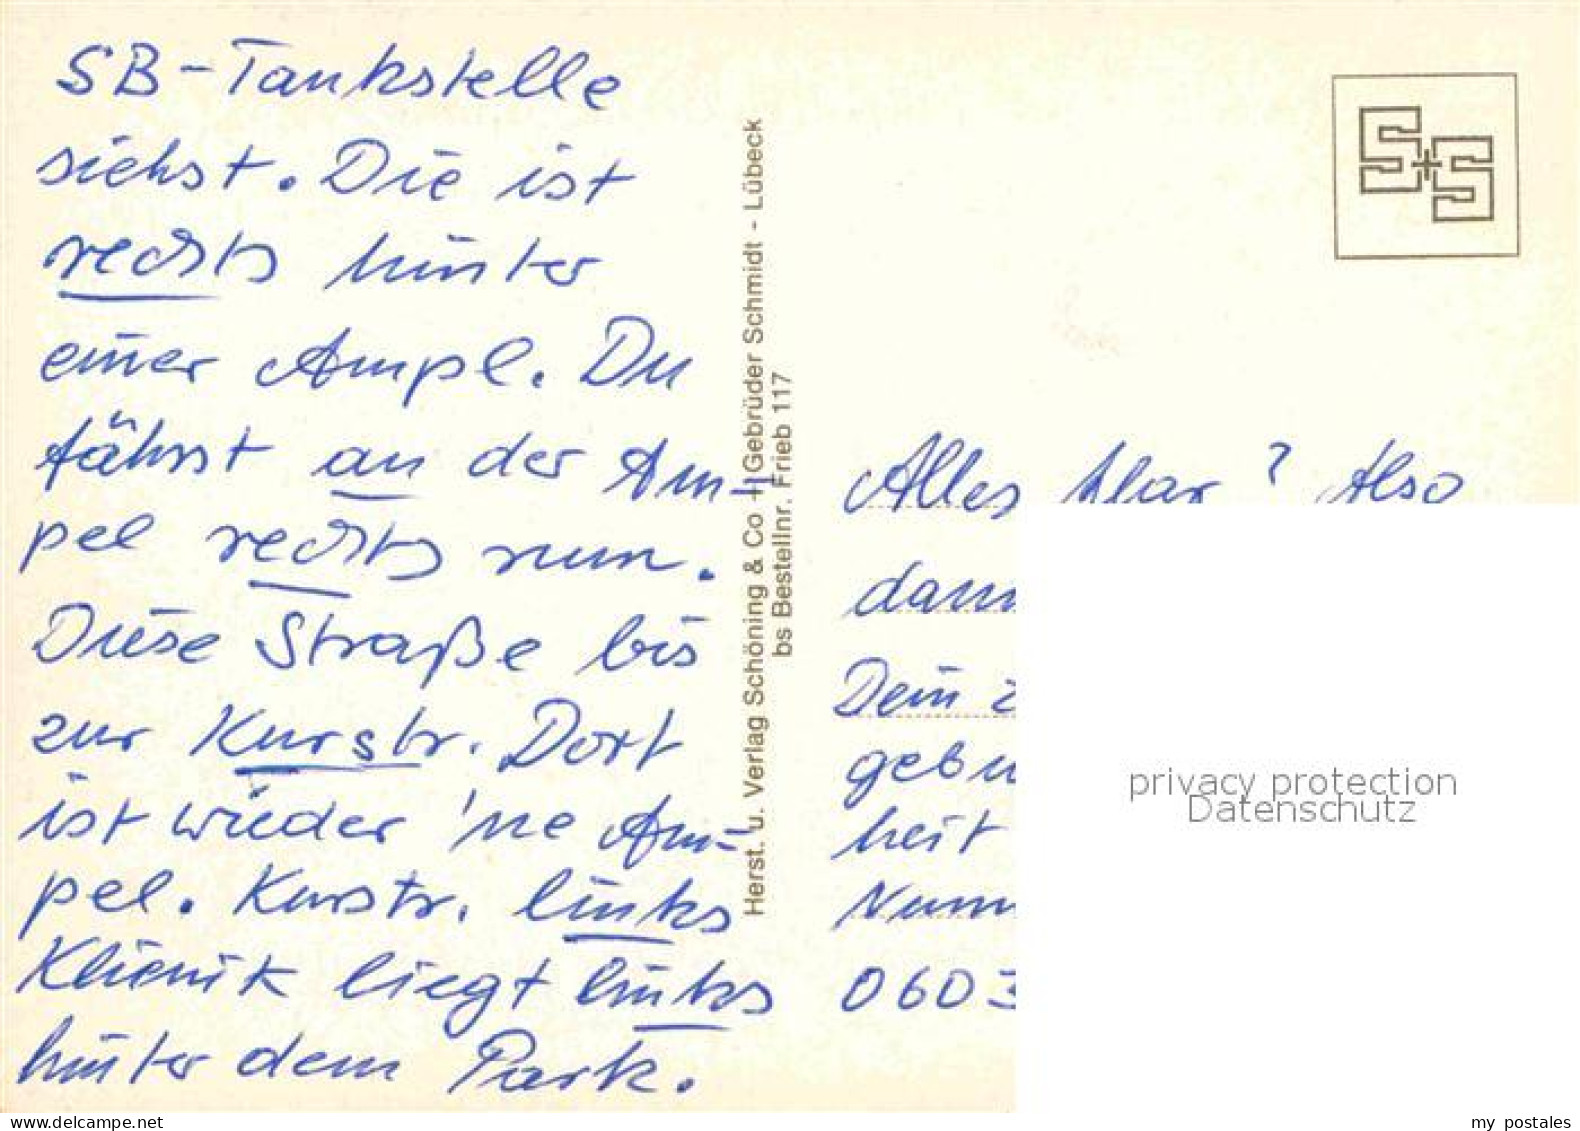 SB-Tankstelle
siehst. Die ist
rechts hinter
einer Ampel. Du
fährst an der Am-
pel rechts rein.
Diese Straße bis
zur Kurstr. Dort
ist wieder 'ne Am-
pel. Kurstr. links
Klienik liegt links
hinter dem Park.
Herst. u. Verlag Schöning & Co + Gebrüder Schmidt - Lübeck
bs Bestellnr. Frieb 117
S+S
Alles klar? Also
dann
Dein
gebu
heit
Numm
0603
privacy protection
Datenschutz
my postales